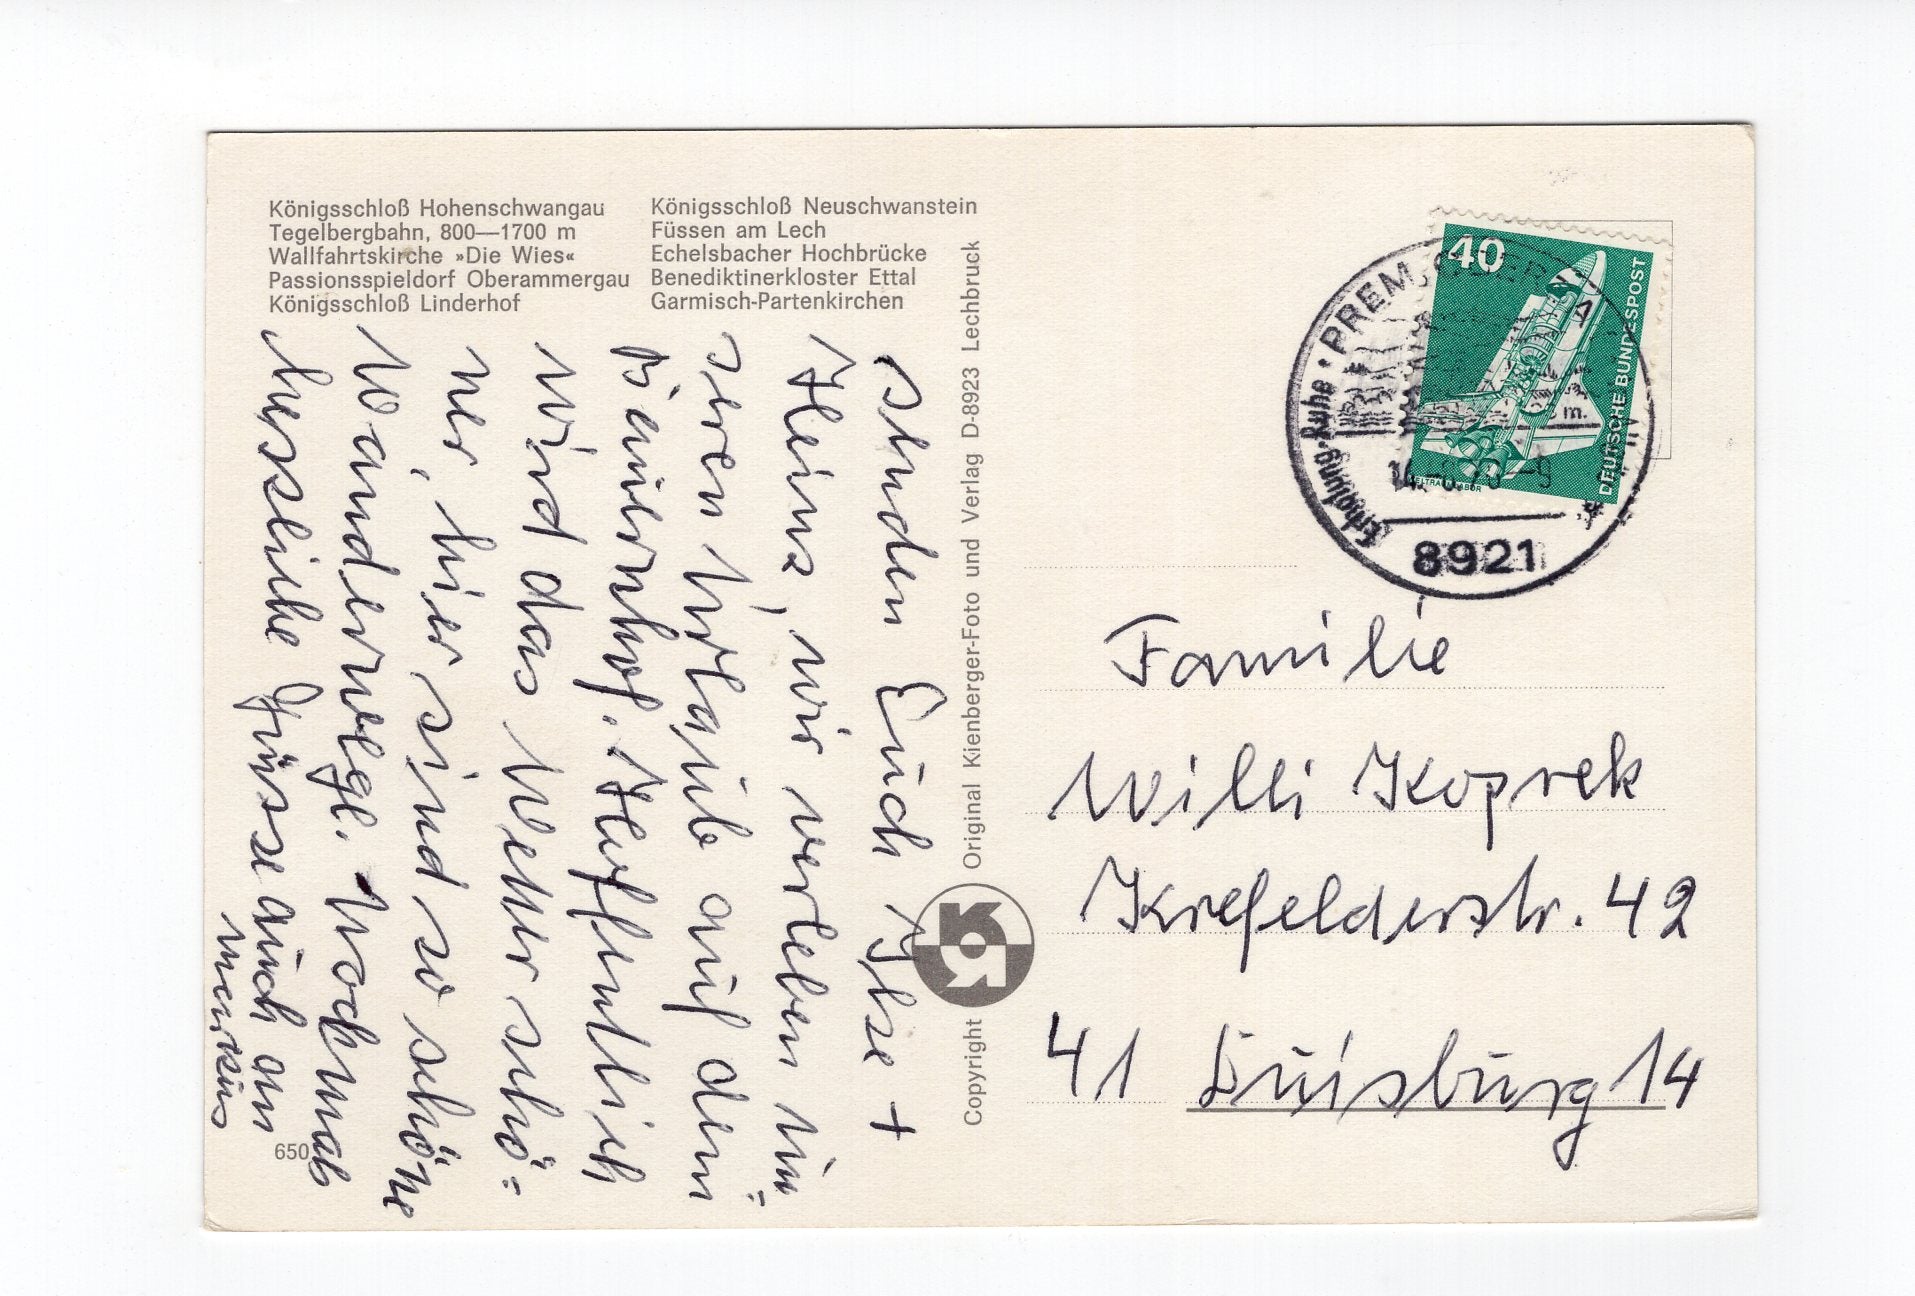 Königsschloß Hohenschwangau
Tegelbergbahn, 800—1700 m
Wallfahrtskirche »Die Wies«
Passionsspieldorf Oberammergau
Königsschloß Linderhof
Königsschloß Neuschwanstein
Füssen am Lech
Echelsbacher Hochbrücke
Benediktinerkloster Ettal
Garmisch-Partenkirchen
Herzliche Grüsse auch an
Markus
senden Euch Ilse +
Heinz, wir verleben un=
seren Urlaub auf dem
Bauernhof. Hoffentlich
wird das Wetter schö=
ner, hier sind so schöne
Wanderwege. Nochmals
Copyright Original Kienberger-Foto und Verlag D-8923 Lechbruck
650
40
DEUTSCHE BUNDESPOST
PREM
Erholung Ruhe
8921
Familie
Willi Koprek
Krefelderstr. 42
41 Duisburg 14